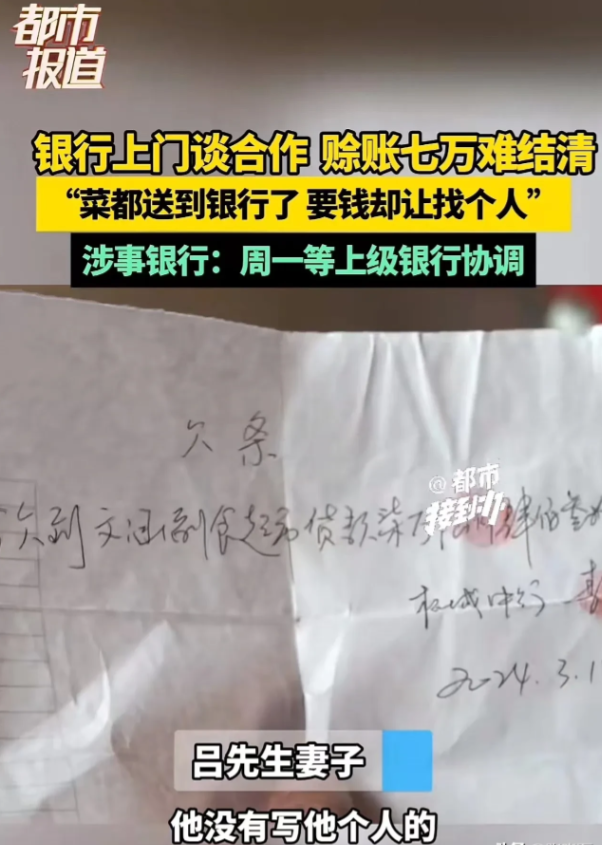 都市
报道
银行上门谈合作 赊账七万难结清
“菜都送到银行了 要钱却让找个人”
涉事银行：周一等上级银行协调
欠条
@都市
接到办
欠到文涵副食超市货款柒
中行
2024.3.1
吕先生妻子
他没有写他个人的